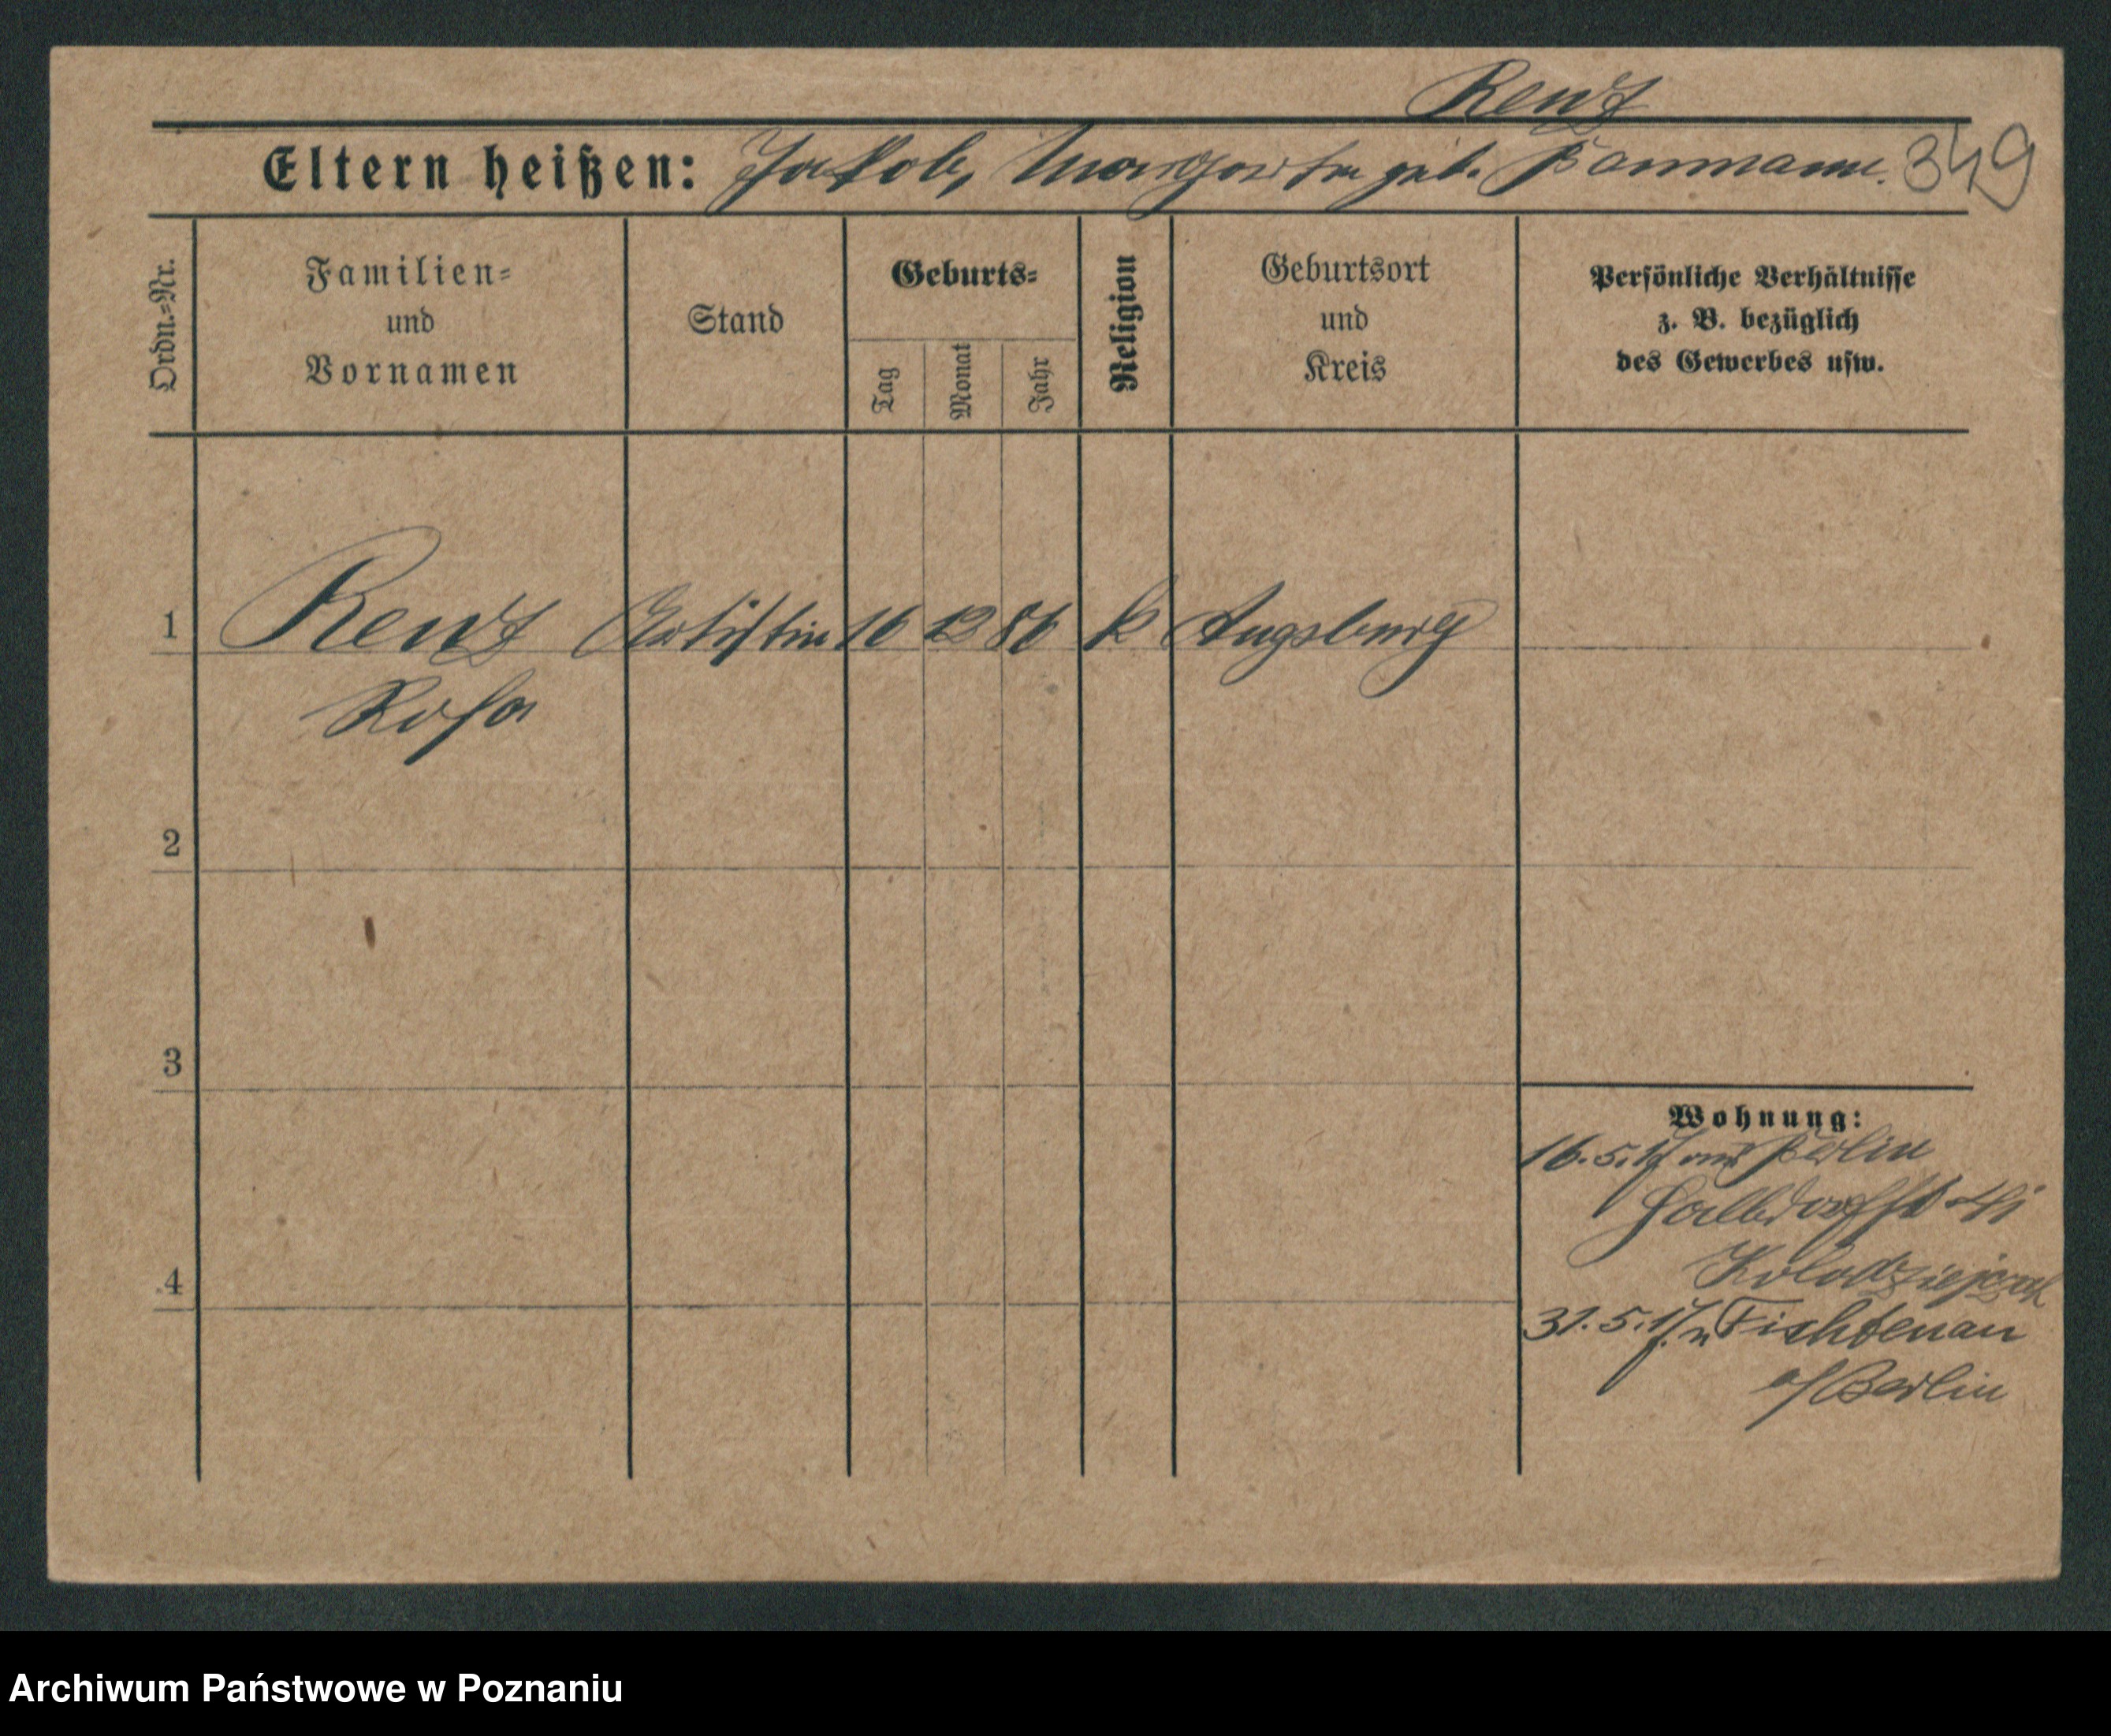 Renz
Eltern heißen: Jakob, Margarete geb. Baumann.
349
Ordn.-Nr.
Familien-
und
Vornamen
Stand
Geburts-
Tag
Monat
Jahr
Religion
Geburtsort
und
Kreis
Persönliche Verhältnisse
z. B. bezüglich
des Gewerbes usw.
1 Renz Artistin 16 12 86 k Augsburg
Rosa
2
3
4
Wohnung:
16.5.17 aus Berlin
Halbdorfst
Kolodziejczak
31.5.17 n Fichtenau
b/Berlin
Archiwum Państwowe w Poznaniu